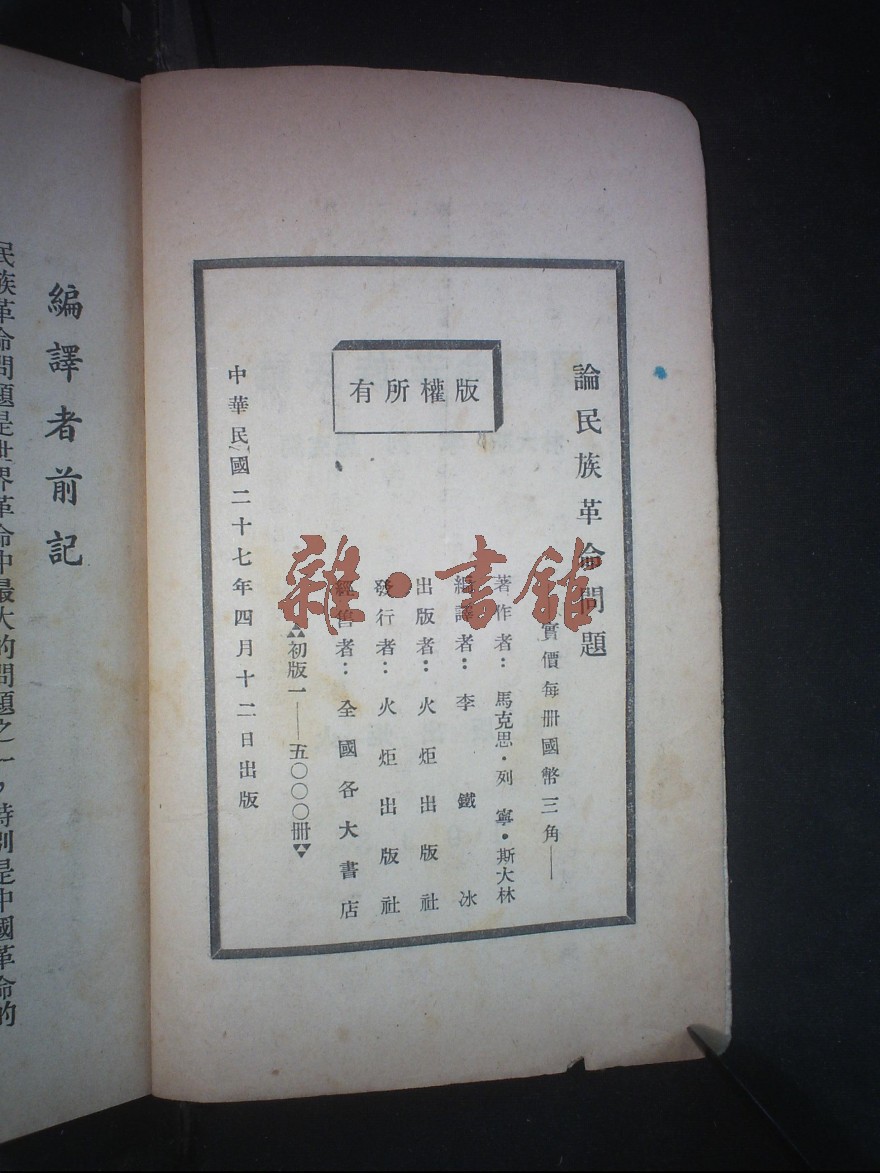 論民族革命問題
實價每册國幣三角——
著作者：馬克思・列寧・斯大林
編譯者：李鐵冰
出版者：火炬出版社
發行者：火炬出版社
經售者：全國各大書店
初版一——五〇〇〇册
版權所有
中華民國二十七年四月十二日出版
編譯者前記
民族革命問題是世界革命中最大的問題之一，特別是中國革命的
雜・書館